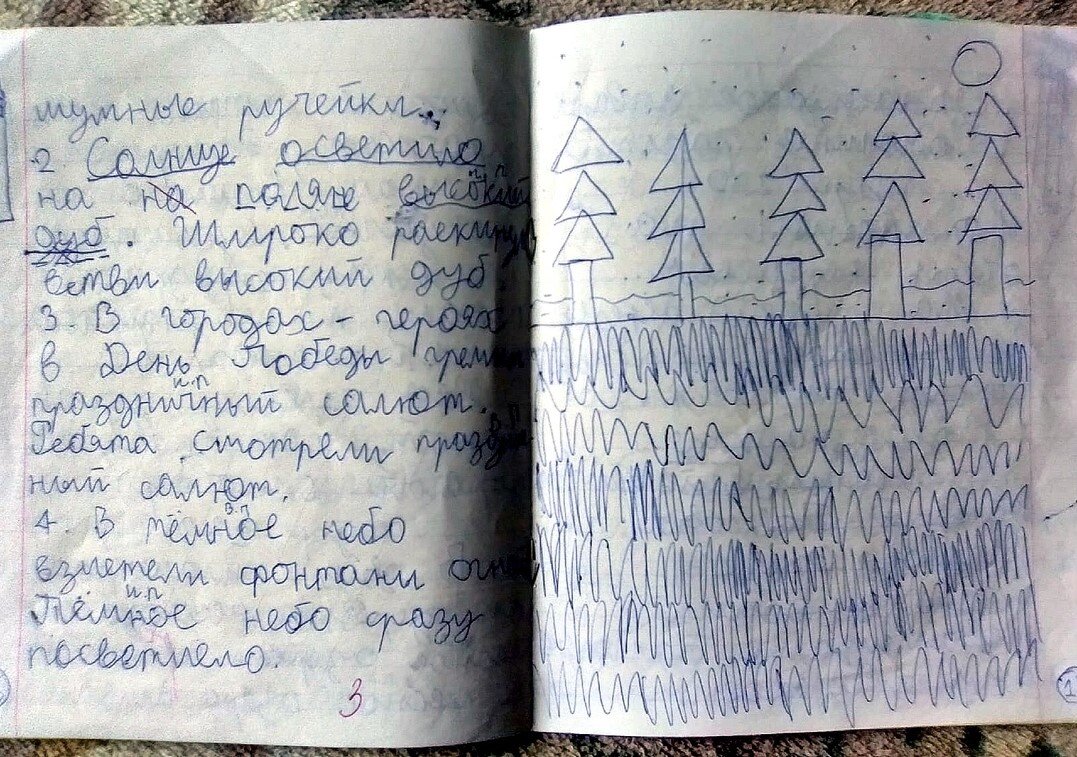 шумные ручейки...
2 Солнце осветило
на на поляне высокий
и.п
дуб. Широко раскинул
ветви высокий дуб
3. В городах-героях
в День Победы гремел
и.п
праздничный салют.
Ребята смотрели
ный салют.
4. В тёмное небо
в.п
взлетели фонтани
и.п
Тёмное небо сразу
посветлело.
3
1